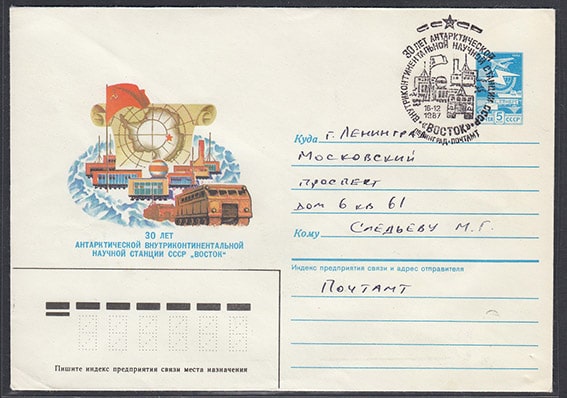 30 ЛЕТ АНТАРКТИЧЕСКОЙ
ВНУТРИКОНТИНЕНТАЛЬНОЙ НАУЧНОЙ СТАНЦИИ СССР
16-12
1987
«ВОСТОК»
ЛЕНИНГРАД-ПОЧТАМТ
5 СССР
Куда г. Ленингра
Московский
проспект
дом 6 кв 61
Кому Следьеву М.Г.
Индекс предприятия связи и адрес отправителя
Почтамт
30 ЛЕТ
АНТАРКТИЧЕСКОЙ ВНУТРИКОНТИНЕНТАЛЬНОЙ
НАУЧНОЙ СТАНЦИИ СССР „ВОСТОК"
Пишите индекс предприятия связи места назначения